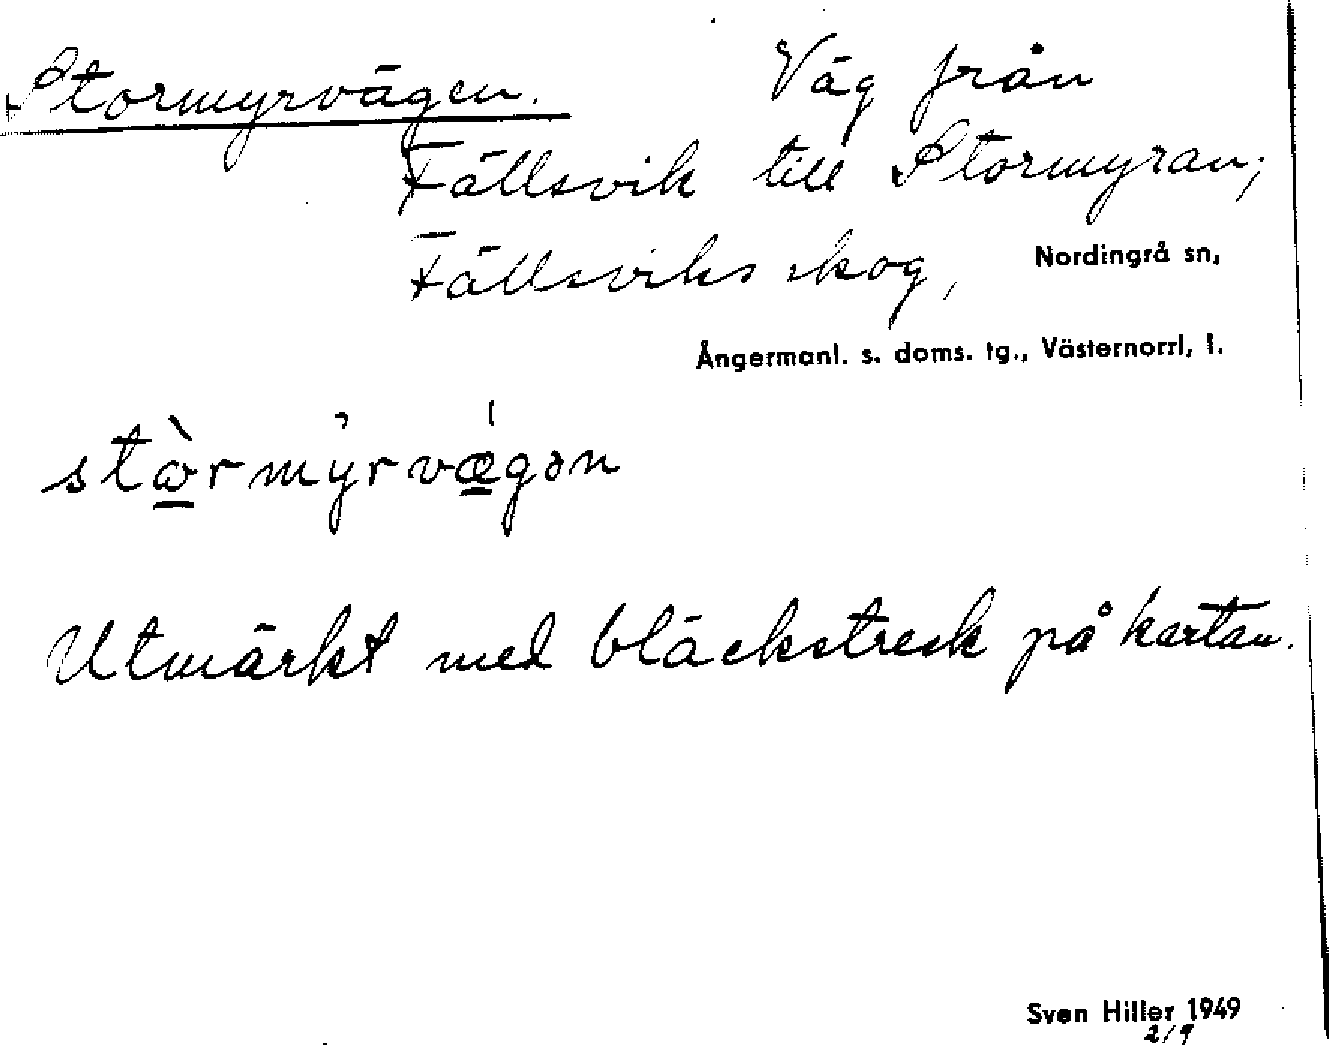 Stormyrvägen. Väg från
Fällsvik till Stormyran,
Fällsviks skog, Nordingrå sn,
Ångermanl. s. doms. tg., Västernorrl, l.
stòrmy̍rvǽgən
Utmärkt med bläckstreck på kartan.
Sven Hiller 1949
2/9